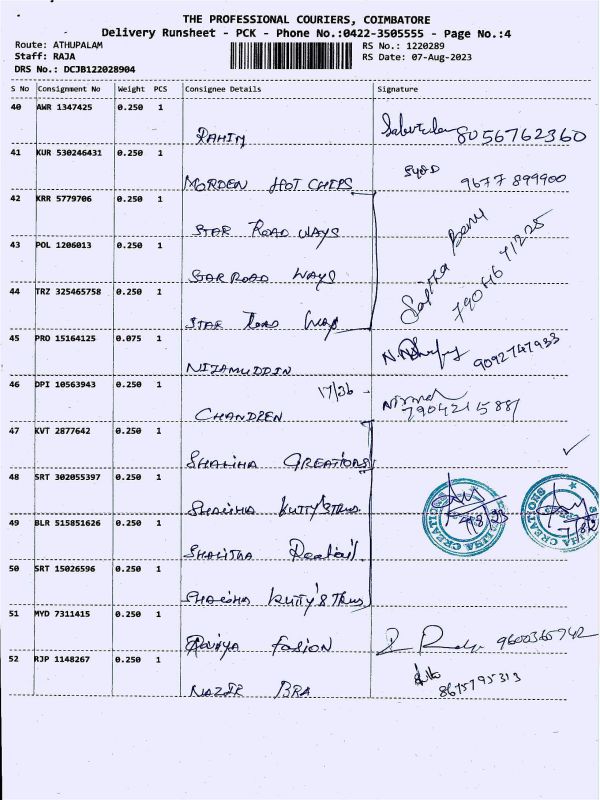 THE PROFESSIONAL COURIERS, COIMBATORE
Delivery Runsheet - PCK - Phone No.:0422-3505555 - Page No.:4
Route: ATHUPALAM RS No.: 1220289
Staff: RAJA RS Date: 07-Aug-2023
DRS No.: DCJB122028904
S No Consignment No Weight PCS Consignee Details Signature
40 AWR 1347425 0.250 1
RAHIM 8056762360
41 KUR 530246431 0.250 1
MORDEN HOT CHIPS 9677 899900
42 KRR 5779706 0.250 1
STAR ROAD WAYS
43 POL 1206013 0.250 1
STAR ROAD WAYS
44 TRZ 325465758 0.250 1
STAR ROAD WAYS
45 PRO 15164125 0.075 1
NIZAMUDDIN 9092747933
46 DPI 10563943 0.250 1 17/36
CHANDREN 7904215881
47 KVT 2877642 0.250 1
SHALIHA CREATIONS
48 SRT 302055397 0.250 1
SHALIHA KUTTY'S
49 BLR 515851626 0.250 1
SHALIHA
50 SRT 15026596 0.250 1
SHALIHA KUTTY'S
51 MYD 7311415 0.250 1
FASION 9600365742
52 RJP 1148267 0.250 1
NAZIR BRA 8675795313